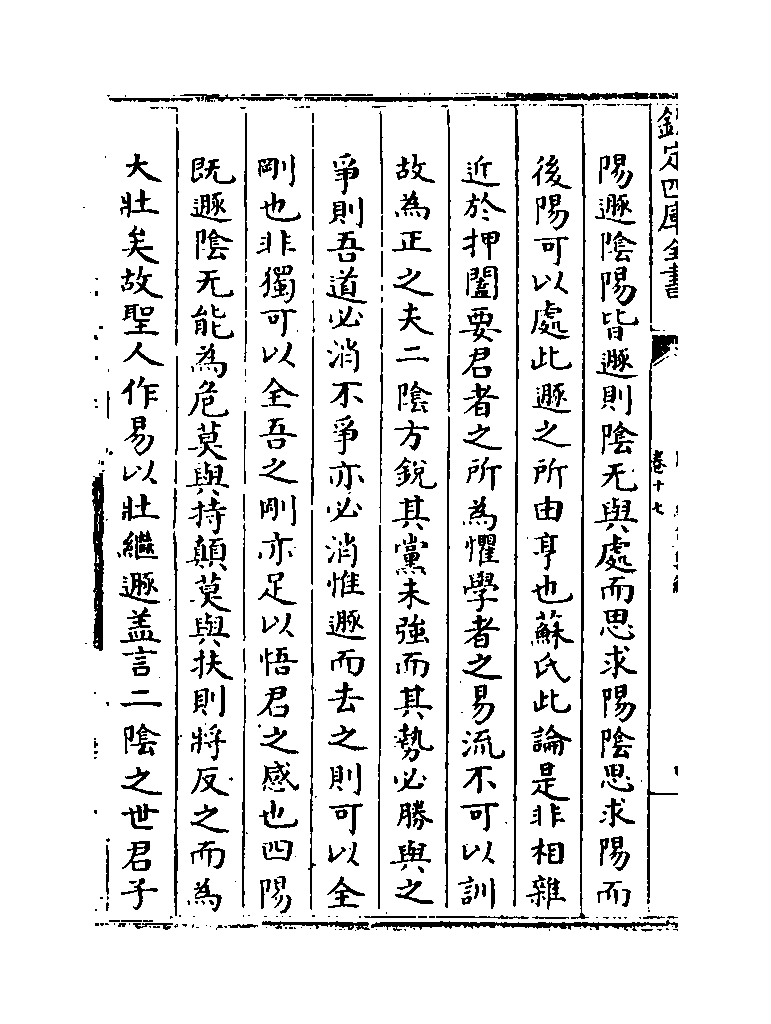 欽定四庫全書
卷十七
陽遯陰陽皆遯則陰无與處而思求陽陰思求陽而
後陽可以處此遯之所由亨也蘇氏此論是非相雜
近於押闔要君者之所為懼學者之易流不可以訓
故為正之夫二陰方銳其黨未強而其勢必勝與之
爭則吾道必消不爭亦必消惟遯而去之則可以全
剛也非獨可以全吾之剛亦足以悟君之感也四陽
既遯陰无能為危莫與持顛莫與扶則將反之而為
大壯矣故聖人作易以壯繼遯盖言二陰之世君子